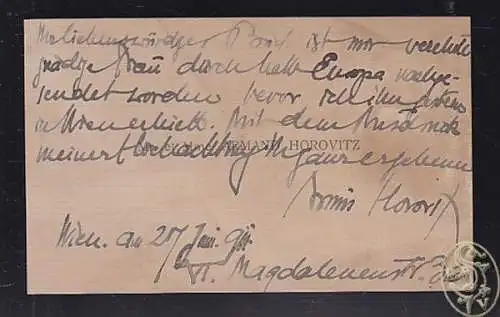 Ihr liebenswürdiger Brief ist mir verehrte
gnädige Frau durch halb Europa nachge-
sendet worden bevor ich ihn gestern
in Wien erhielt. Mit dem Ausdruck
meiner Hochachtung Ihr ganz ergebener
ARMAND HOROVITZ
Horovitz
Wien. am 20/ Jan. 9
VI. Magdalenenstr.